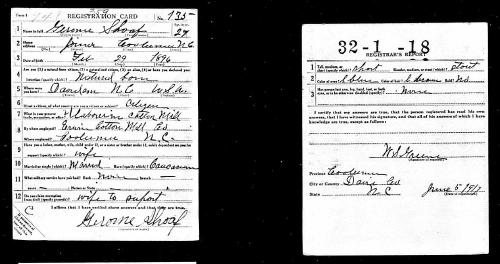 Form 1
REGISTRATION CARD No. 135
1 Name in full Gerome Shoaf 27
2 Home address Cooleemee N.C.
3 Date of birth Feb 29 1896
4 Are you (1) a natural-born citizen, (2) a naturalized citizen, (3) an alien, (4) or have you declared your intention (specify which)? Natural born
5 Where were you born? N.C. U.S.A.
6 If not a citizen, of what country are you a citizen or subject? Citizen
7 What is your present trade, occupation, or office? Cotton Mill
8 By whom employed? Erwin Cotton Mill Co
Where employed? Cooleemee N.C.
9 Have you a father, mother, wife, child under 12, or a sister or brother under 12, solely dependent on you for support (specify which)? wife
10 Married or single (which)? Married Race (specify which)? Caucasian
11 What military service have you had? Rank None
12 Do you claim exemption from draft (specify grounds)? wife to suport
I affirm that I have verified above answers and that they are true.
Gerome Shoaf
32-1-18
REGISTRAR'S REPORT
1 Tall, medium, or short (specify which)? short Slender, medium, or stout (which)? stout
2 Color of eyes? blue Color of hair? brown Bald? No
3 Has person lost arm, leg, hand, foot, or both eyes, or is he otherwise disabled (specify)? None
I certify that my answers are true, that the person registered has read his own answers, that I have witnessed his signature, and that all of his answers of which I have knowledge are true, except as follows:
W S Greene
Precinct Cooleemee
City or County Davie Co
State N C
June 5 1917